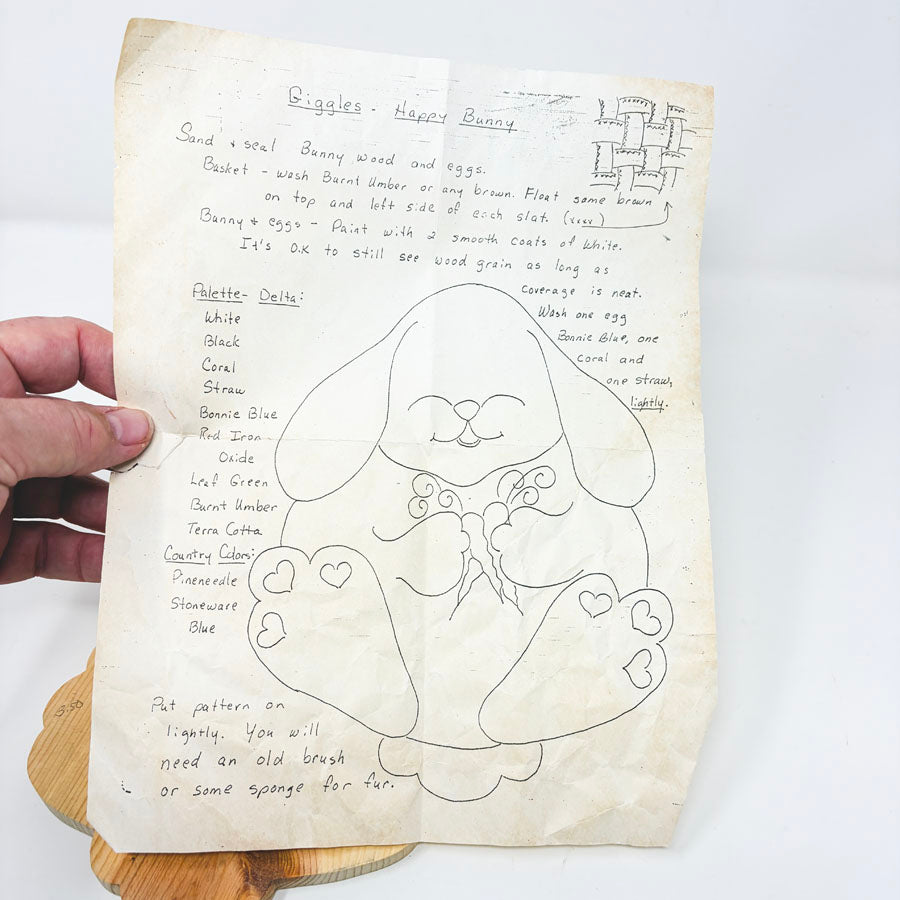 Giggles - Happy Bunny
Sand & seal Bunny wood and eggs.
Basket - wash Burnt Umber or any brown. Float some brown
on top and left side of each slat. (xxxx)
Bunny & eggs - Paint with 2 smooth coats of White.
It's O.K to still see wood grain as long as
coverage is neat.
Wash one egg
Bonnie Blue, one
coral and
one straw,
lightly.
Palette - Delta:
White
Black
Coral
Straw
Bonnie Blue
Red Iron
Oxide
Leaf Green
Burnt Umber
Terra Cotta
Country Colors:
Pineneedle
Stoneware
Blue
Put pattern on
lightly. You will
need an old brush
or some sponge for fur.
3.50